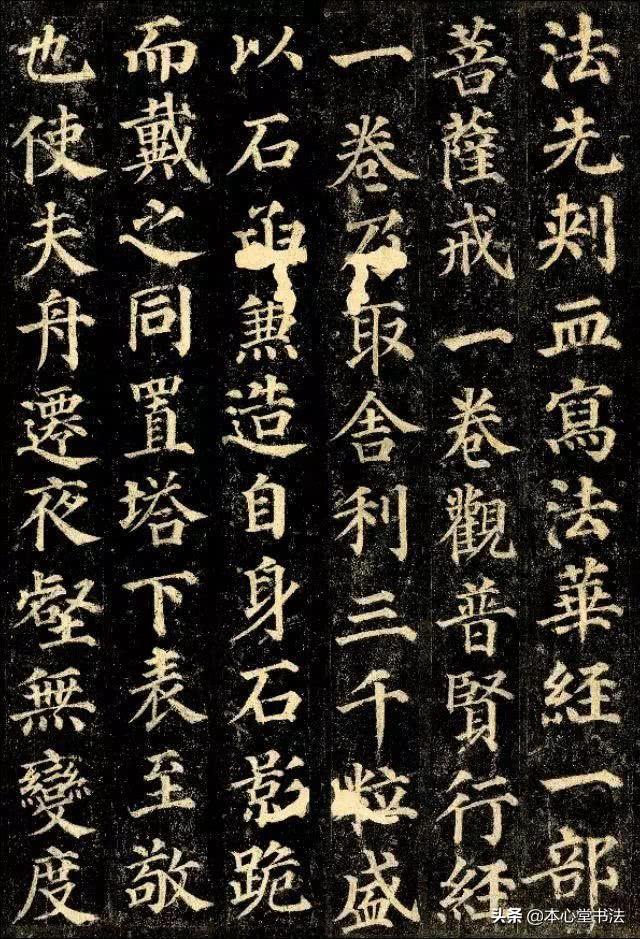 法先刾血寫法華経一部
菩薩戒一卷觀普賢行経
一卷乃取舎利三千粒盛
以石函兼造自身石影跪
而戴之同置塔下表至敬
也使夫舟遷夜壑無變度
头条 @本心堂书法